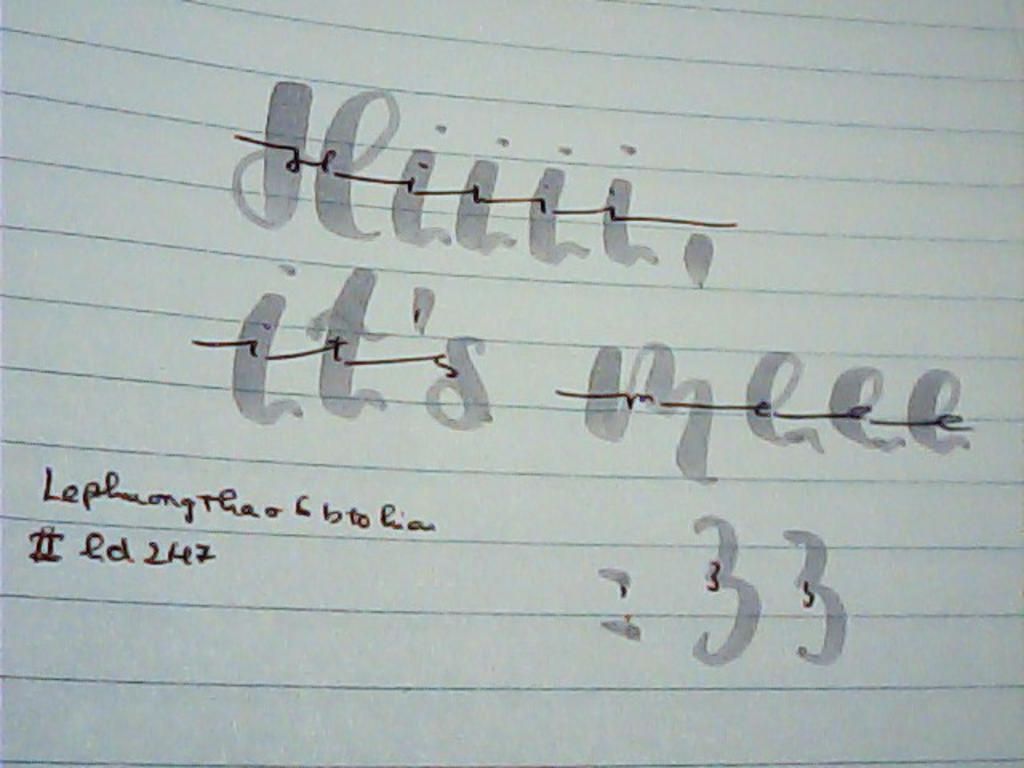 Hiiii,
it's meee
:33
LephuongThao6btohieu
II hd 247